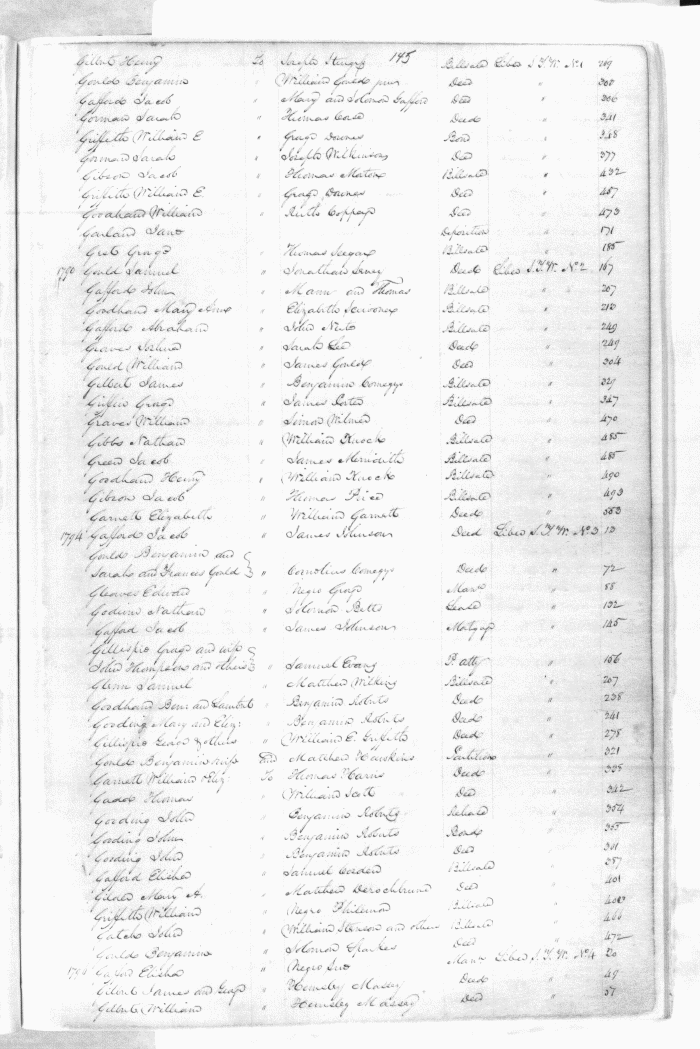 145
Gilbert Henry To Joseph Sturgis Billsale Liber S.T.W. No 1 209
Gould Benjamin " William Gould jun Deed " 300
Gafford Jacob " Mary and Solomon Gafford Deed " 306
Gorman Sarah " Thomas Deed " 341
Griffith William E " George Downes Bond " 348
Gorman Sarah " Joseph Wilkinson Deed " 377
Gibson Jacob " Thomas Billsale " 432
Griffith William E. " George Downes Deed " 457
Goodhand William " Ruth Coppage Deed " 473
Garland Jane Deposition " 171
George " Thomas Billsale " 185
1790 Gould Samuel " Jonathan Deed Liber S.T.W. No 2 167
Gafford John " Thomas Billsale " 207
Goodhand Mary Ann " Elizabeth Billsale " 210
Gafford Abraham " John Billsale " 249
Graves Joshua " Sarah Deed " 249
Gould William " James Gould Deed " 304
Gilbert James " Benjamin Comegys Billsale " 329
Griffin George " James Billsale " 347
Graves William " Simon Wilmer Deed " 470
Gibbs Nathan " William Knock Billsale " 485
Green Jacob " James Merridith Billsale " 485
Goodhand Henry " William Knock Billsale " 490
Gibson Jacob " Thomas Price Billsale " 493
Garnett Elizabeth " William Garnett Deed " 553
1794 Gafford Jacob " James Johnson Deed Liber S.T.W. No 3 13
Gould Benjamin and
Sarah and Frances Gould " Cornelius Comegys Deed " 72
Gleaves Edward " Negro Manu " 88
Godwin Nathan " Solomon Betts Lease " 132
Gafford Jacob " James Johnson Mortgage " 145
Gillespie George and wife
John Thompson and others " Samuel Evans P. atty " 156
Glenn Samuel " Matthew Wilkins Billsale " 207
Goodhand Benj: and Lambert " Benjamin Roberts Deed " 238
Gooding Mary and Eliz: " Benjamin Roberts Deed " 241
Gillispie George & others " William E. Griffith Deed " 278
Gould Benjamin wife and Matthew Hawkins Partition " 321
Garnett William & Eliz: To Thomas Harris Deed " 338
Thomas " William Scott Deed " 342
Gooding John " Benjamin Roberts Release " 354
Gooding John " Benjamin Roberts Bond " 355
Gooding John " Benjamin Roberts Deed " 301
Gafford Elisha " Samuel Corden Billsale " 357
Gilder Mary A. " Matthew Derochbrune Deed " 401
Griffith William " Negro Philemon Billsale "
John " William and others Billsale " 466
Gould Benjamin " Solomon Sparkes Deed " 472
Elisha " Negro Manu Liber S.T.W. No 4 20
Gilbert James and George " Hemsley Massey Deed " 49
Gilbert William " Hemsley Massey Deed " 57